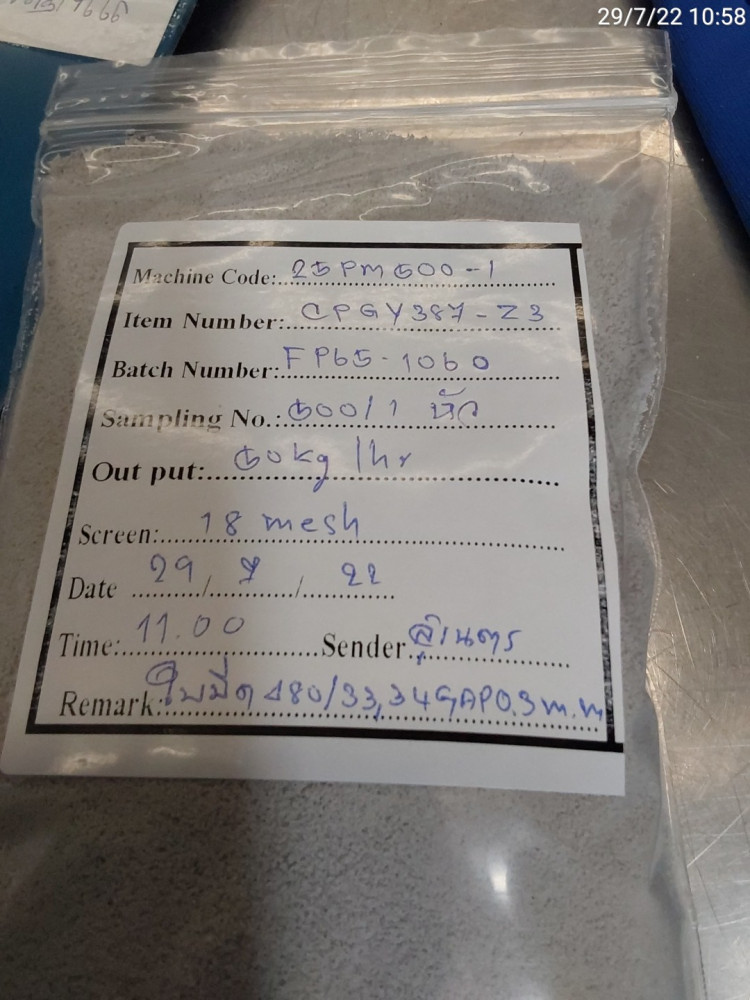 29/7/22 10:58
Machine Code: 25PM500-1
Item Number: CPGY387-Z3
Batch Number: FP65-1060
Sampling No.: 500/1 หัว
Out put: 50kg/hr
Screen: 18 mesh
Date 29/7/22
Time: 11.00 Sender
Remark: ใบมีด 480/33,34 GAP0.3m.m